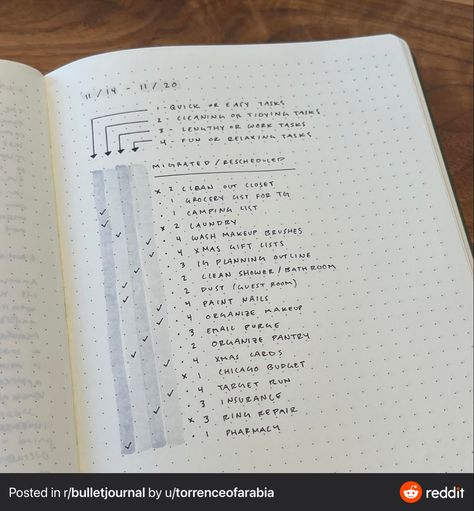 11/14 - 11/20
1 - QUICK OR EASY TASKS
2 - CLEANING OR TIDYING TASKS
3 - LENGTHY OR WORK TASKS
4 - FUN OR RELAXING TASKS
MIGRATED / RESCHEDULED
x 2 CLEAN OUT CLOSET
· 1 GROCERY LIST FOR TG
· 1 CAMPING LIST
x 2 LAUNDRY
· 4 WASH MAKEUP BRUSHES
· 4 XMAS GIFT LISTS
· 3 IG PLANNING OUTLINE
· 2 CLEAN SHOWER / BATHROOM
· 2 DUST (GUEST ROOM)
· 4 PAINT NAILS
· 4 ORGANIZE MAKEUP
· 3 EMAIL PURGE
· 2 ORGANIZE PANTRY
· 4 XMAS CARDS
x 1 CHICAGO BUDGET
· 4 TARGET RUN
· 3 INSURANCE
x 3 RING REPAIR
· 1 PHARMACY
Posted in r/bulletjournal by u/torrenceofarabia
reddit